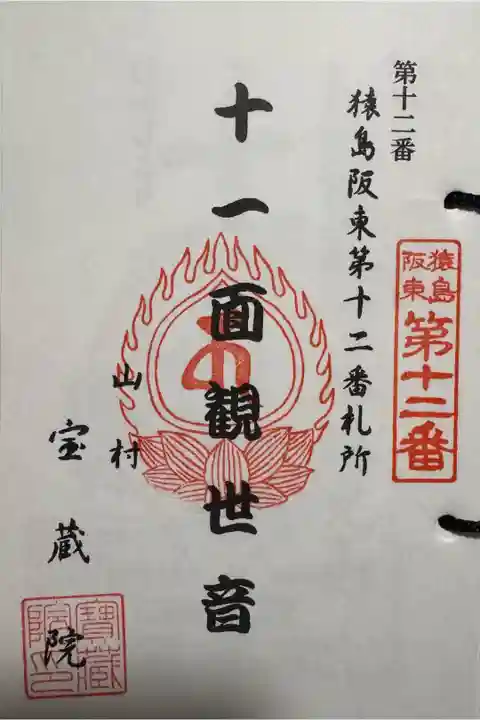 第十二番
猿島阪東第十二番札所
猿島
阪東
第十二番
十一面観世音
山村
宝蔵院
寶藏
院印